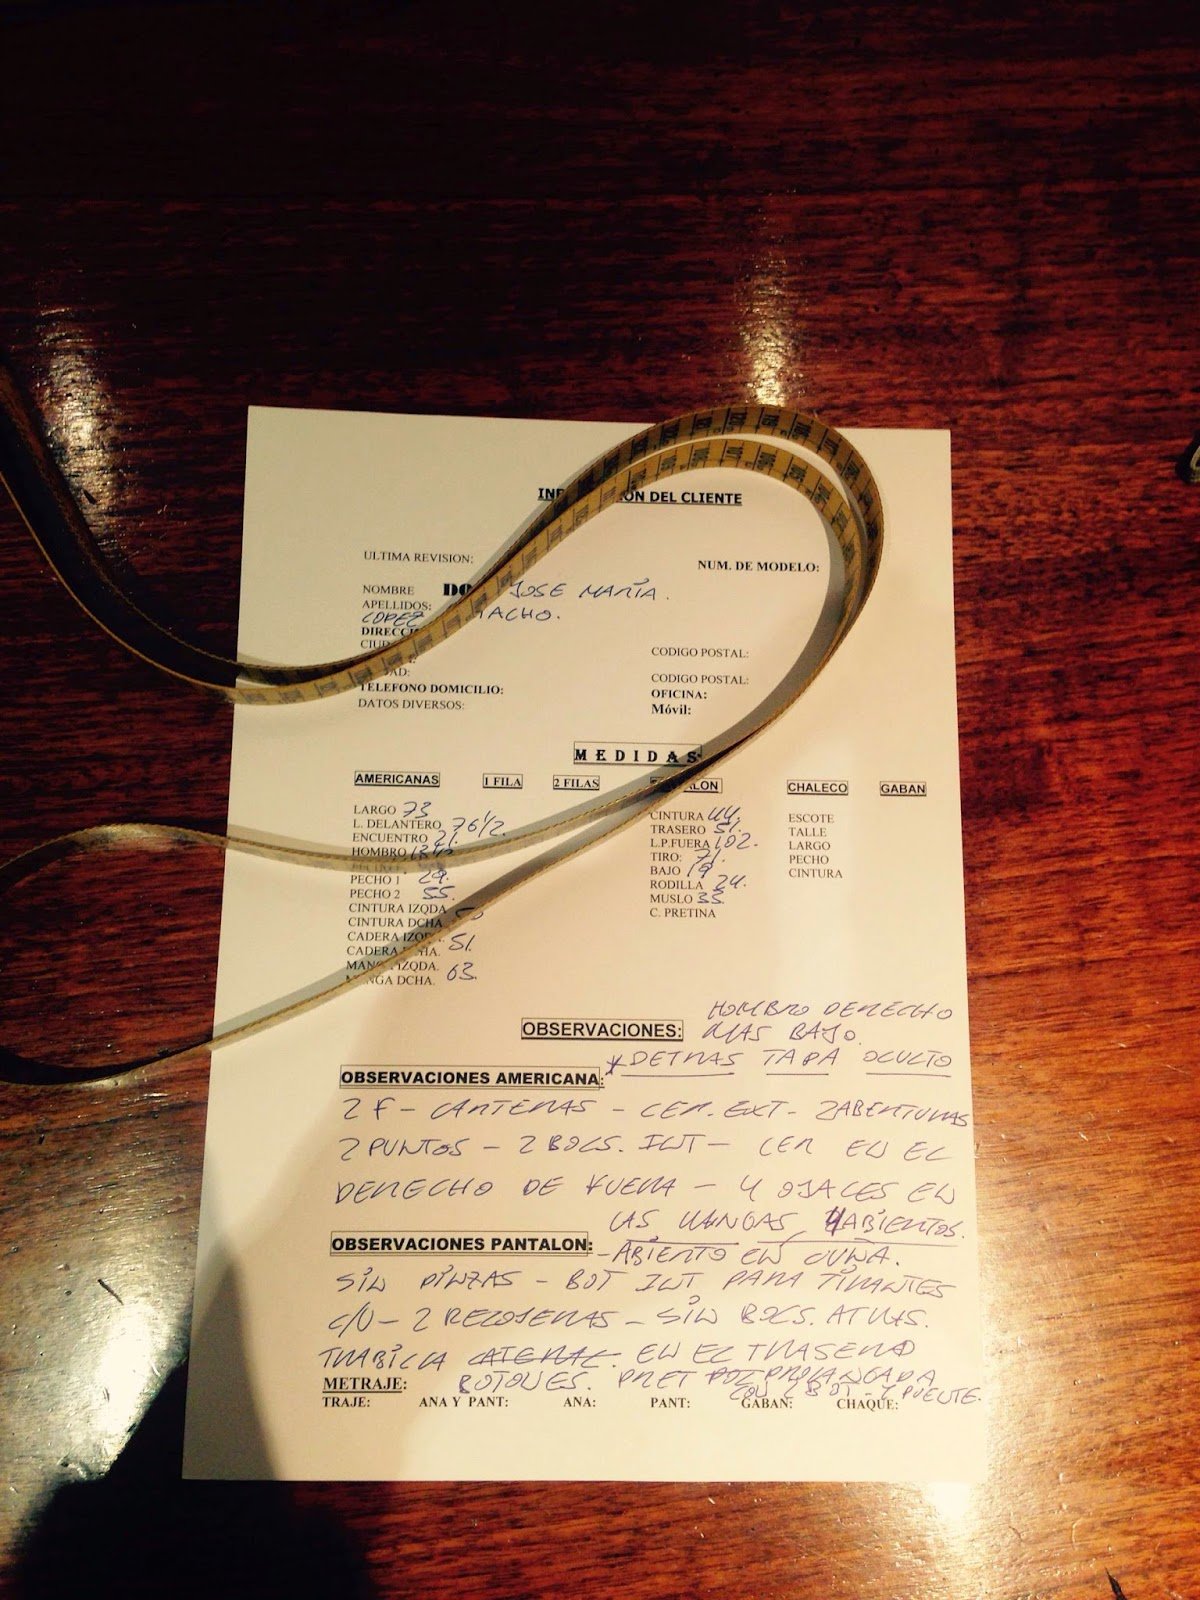 DEL CLIENTE
ULTIMA REVISION:
NUM. DE MODELO:
NOMBRE JOSE MARÍA.
APELLIDOS:
LOPEZ
CODIGO POSTAL:
CODIGO POSTAL:
TELEFONO DOMICILIO: OFICINA:
DATOS DIVERSOS: Móvil:
MEDIDAS
AMERICANAS 1 FILA 2 FILAS CHALECO GABAN
LARGO 73
L. DELANTERO 76 1/2.
ENCUENTRO 21.
HOMBRO
PECHO 1 29.
PECHO 2 55.
CINTURA IZQDA.
CINTURA DCHA.
CADERA IZQDA. 51.
CADERA DCHA.
IZQDA. 63.
DCHA.
CINTURA 44.
TRASERO 51.
L.P.FUERA 102.
TIRO: 71.
BAJO 19
RODILLA 24.
MUSLO 35.
C. PRETINA
ESCOTE
TALLE
LARGO
PECHO
CINTURA
HOMBRO DERECHO
OBSERVACIONES: MAS BAJO.
* DETRAS TAPA OCULTO
OBSERVACIONES AMERICANA:
2 F - CARTERAS - CER. EXT - 2 ABERTURAS
2 PUNTOS - 2 BOLS. INT - CER EN EL
DERECHO DE FUERA - 4 OJALES EN
LAS MANGAS, 4 ABIERTOS.
OBSERVACIONES PANTALON: - ABIERTO EN CUÑA.
SIN PINZAS - BOT INT PARA TIRANTES
C/V - 2 RECOJERAS - SIN BOLS. ATRAS.
TRABILLA LATERAL. EN EL TRASERO
METRAJE: BOTONES. PRET PROLONGADA
CON BOT Y PUENTE.
TRAJE: ANA Y PANT: ANA: PANT: GABAN: CHAQUE: